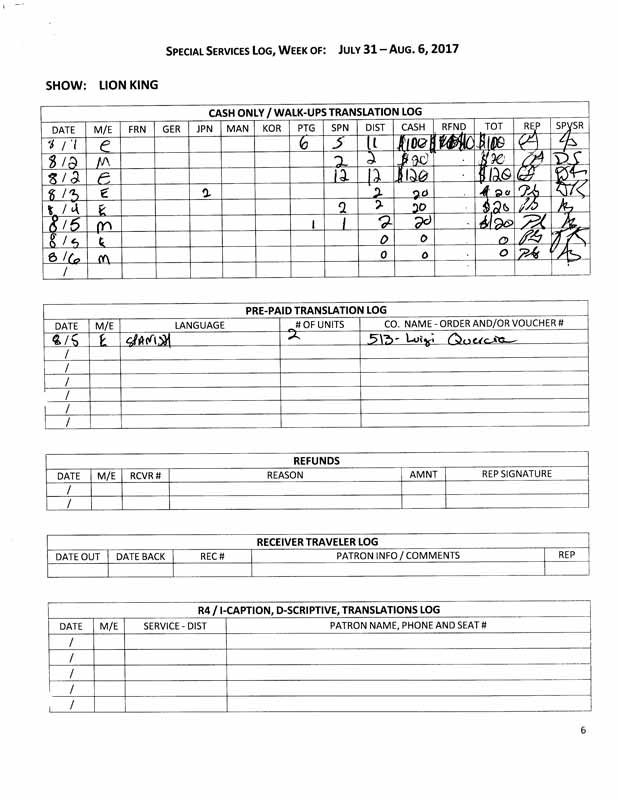 SPECIAL SERVICES LOG, WEEK OF: JULY 31 – AUG. 6, 2017
SHOW: LION KING
CASH ONLY / WALK-UPS TRANSLATION LOG
DATE M/E FRN GER JPN MAN KOR PTG SPN DIST CASH RFND TOT REP SPVSR
8/1 e 6 5 11 $100 $100
8/2 M 2 2 $20 $20 DS
8/2 e 12 12 $120 $120
8/3 E 2 2 20 $20 Pb
8/4 E 2 2 20 $20 Pb
8/5 M 1 1 2 20 $20 Pb
8/5 E 0 0 0 Pb
8/6 M 0 0 0 Pb
/
PRE-PAID TRANSLATION LOG
DATE M/E LANGUAGE # OF UNITS CO. NAME - ORDER AND/OR VOUCHER #
8/5 E SPANISH 2 513- Luigi Quercia
/
/
/
/
/
/
REFUNDS
DATE M/E RCVR # REASON AMNT REP SIGNATURE
/
/
RECEIVER TRAVELER LOG
DATE OUT DATE BACK REC # PATRON INFO / COMMENTS REP
R4 / I-CAPTION, D-SCRIPTIVE, TRANSLATIONS LOG
DATE M/E SERVICE - DIST PATRON NAME, PHONE AND SEAT #
/
/
/
/
/
6